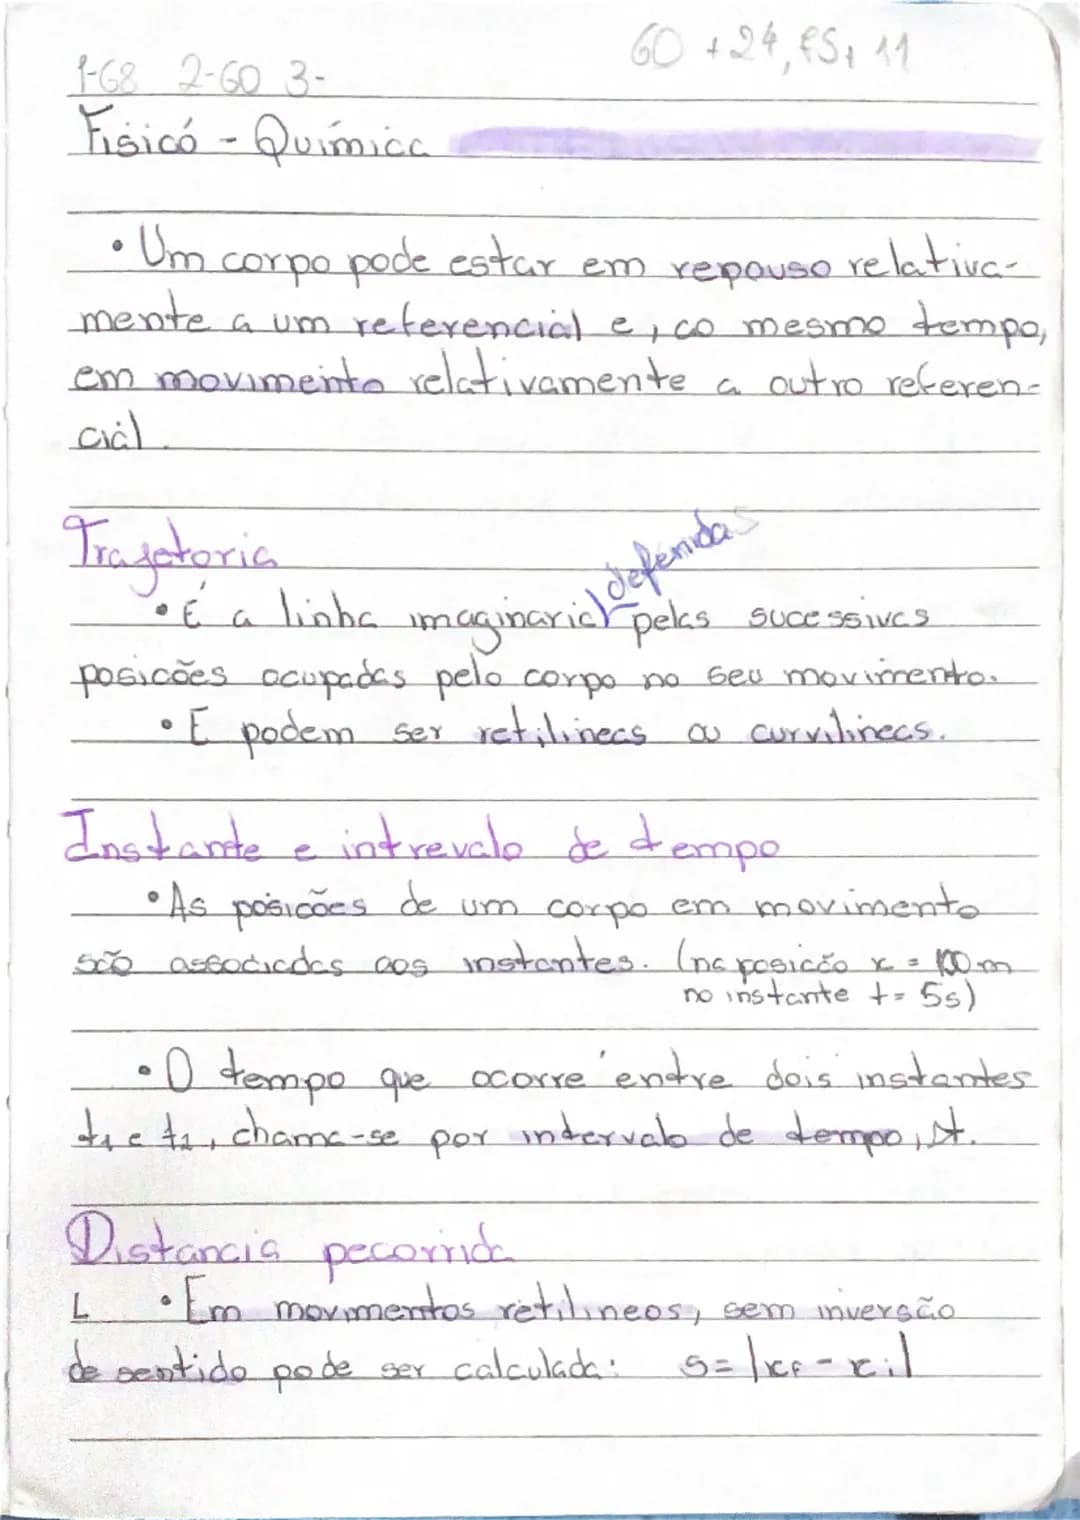 60 + 24, 11
1-68 2-60 3-
Fisicó - Química
• Um corpo pode estar em repouso relativa-
mente a um referencial e, ao mesmo tempo,
em movimento relativamente a outro referen-
cial.
Trajetoria
defenidas
• É a linha imaginaria pelas sucessivas
posicões ocupadas pelo corpo no seu movimento.
• E podem ser retilineas ou curvilineas.
Instante e intrevalo de tempo
• As posicões de um corpo em movimento
são associadas aos instantes. (na posicão x = 100 m
no instante t = 5s)
• O tempo que ocorre entre dois instantes
t1 e t2, chama-se por intervalo de tempo, Δt.
Distancia pecorrida
L • Em movimentos retilineos, sem inversão
de sentido pode ser calculada: s = |xf - xi|